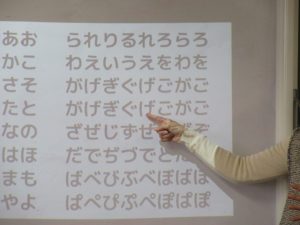 あお られりるれろらろ
かこ わえいうえをわを
さそ がげぎぐげごがご
たと がげぎぐげごがご
なの ざぜじずぜ
はほ だでぢづでど
まも ばべびぶべぼばぼ
やよ ぱぺぴぷぺぽぱぽ